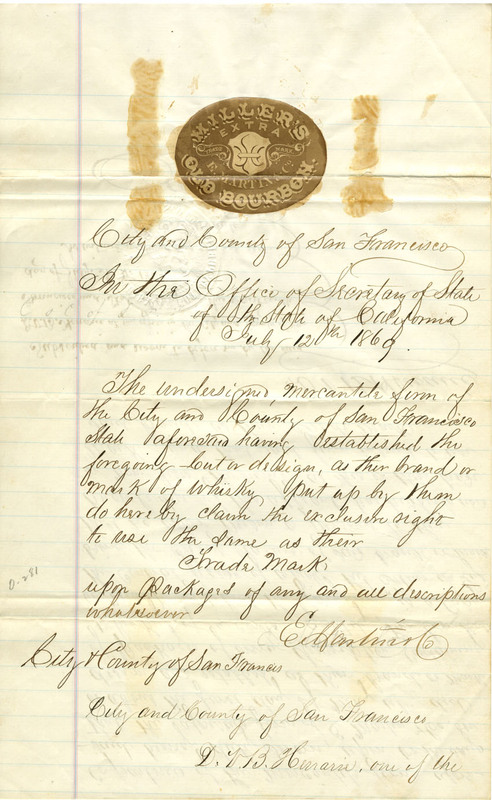 MILLER'S
EXTRA
TRADE MARK
E. MARTIN & Co.
OLD BOURBON.
City and County of San Francisco
In the Office of Secretary of State
of the State of California
July 12th 1869.
The undersigned mercantile firm of
the City and County of San Francisco
State aforesaid having established the
foregoing cut or design, as their brand or
mark of whisky put up by them
do hereby claim the exclusive right
to use the same as their
Trade Mark,
upon Packages of any and all descriptions
whatsoever
E Martin & Co
0-281
City & County of San Francis
City and County of San Francisco
D. V. B. Henarie, one of the